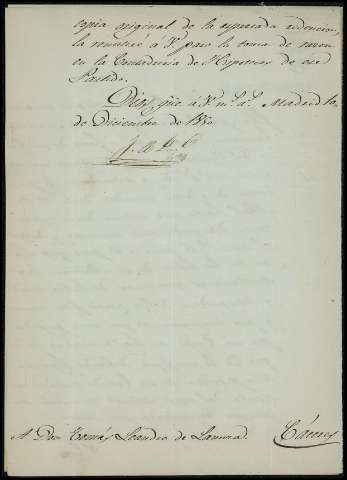 copia original de la espresada
la remitiré á V. para la toma de razon
en la Contaduria de Hipotecas de ese
Partido.
Dios gue. á V. ms. as. Madrid 10
de Diciembre de 1850.
A Don Tomás Leandro de